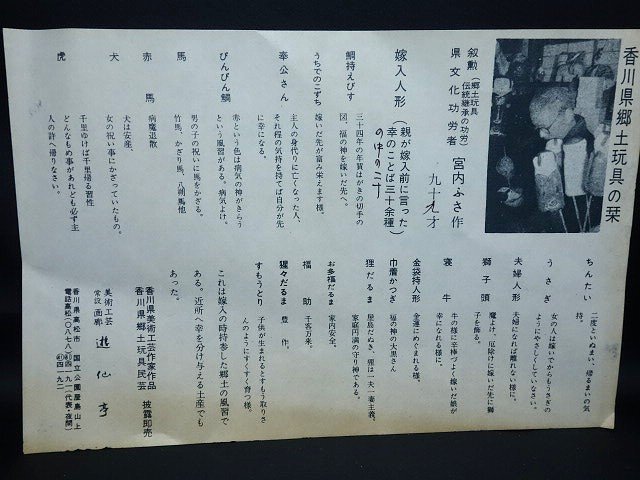 香川県郷土玩具の栞
叙勲(郷土玩具伝統継承の功労)
県文化功労者 宮内ふさ作
九十九才
嫁入人形(親が嫁入前に言った幸のことば三十余種)
鯛持えびす 三十四年の年賀はがきの切手の
図、福の神を嫁いだ先へ。
うちでのこずち 嫁いだ先が富み栄えます様。
奉公さん 主人の身代りに亡くなった人、
それ程の気持を持てば自分が先
に幸になる。
ぴんぴん鯛 赤という色は病気の神がきらう
という風習がある。病気よけ。
馬 男の子の祝いに馬をかざる。
竹馬、かざり馬、八朔馬他
赤馬 病魔退散
犬 犬は安産、
女の祝い事にかざっていたもの。
虎 千里ゆけば千里帰る習性
どんなもめ事があれども必ず主
人の許へ帰りなさい。
ちんたい 二度といぬまい、帰るまいの気
持。
うさぎ 女の人は嫁いでからもうさぎの
ようにやさしくしていなさい。
夫婦人形 夫婦になれば離れない様に。
獅子頭 魔よけ、厄除けに嫁いだ先に獅
子を飾る。
寝牛 牛の様に辛棒づよく嫁いだ娘が
幸になれる様に。
金袋持人形 金運にめぐまれる様。
巾着かつぎ 福の神の大黒さん
狸だるま 屋島だぬき、狸は一夫一妻主義。
家庭円満の守り神である。
お多福だるま 家内安全。
福助 千客万来。
猩々だるま 豊作。
すもうとり 子供が生まれるとすもう取りさ
んのようにすくすく育つ様。
これは嫁入の時持参した郷土の風習で
ある。近所へ幸を分け与える土産でも
あった。
香川県美術工芸作家作品
香川県郷土玩具民芸 披露即売
美術工芸
常設画廊 遊仙亭
香川県高松市 国立公園屋島山上
電話高松(〇八七八)(41)四一九一(代表・夜間)
(41)四一九二